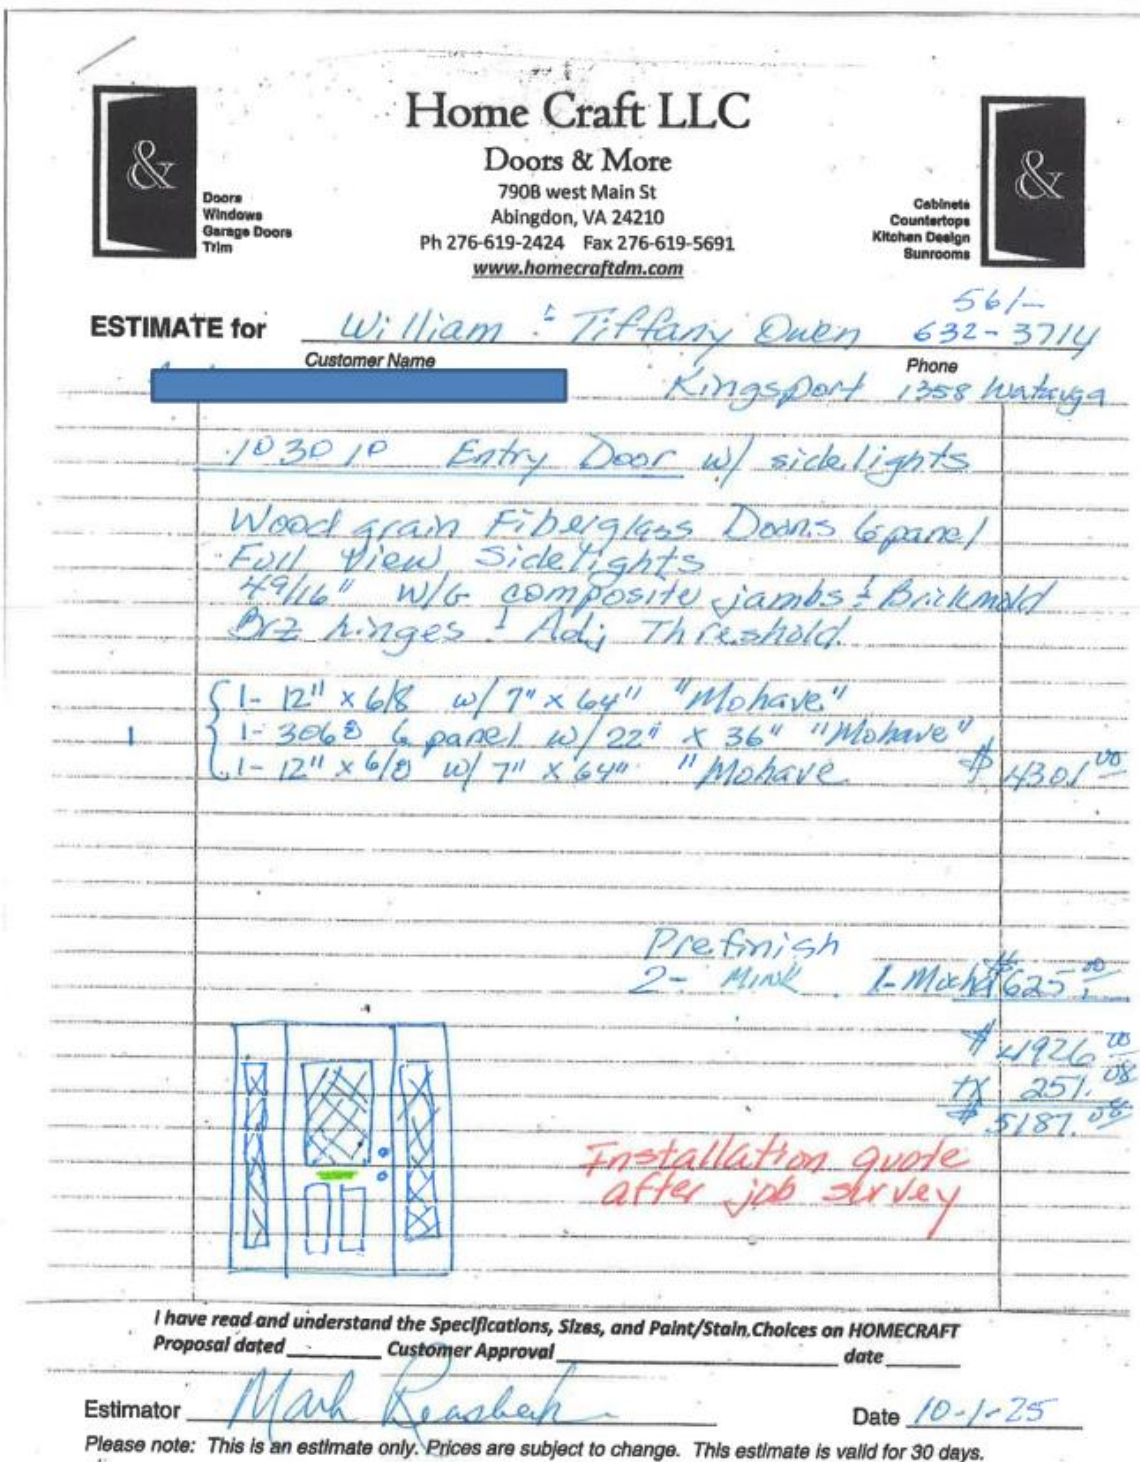 Home Craft LLC
Doors & More
790B west Main St
Abingdon, VA 24210
Ph 276-619-2424 Fax 276-619-5691
www.homecraftdm.com
&
Doors
Windows
Garage Doors
Trim
&
Cabinets
Countertops
Kitchen Design
Sunrooms
561-
ESTIMATE for William & Tiffany Owen 632-3714
Customer Name Phone
Kingsport 1358 Watauga
103010 Entry Door w/ sidelights
Wood grain Fiberglass Doors 6 panel
Full View Sidelights
4 9/16" W/G composite jambs & Brickmold
Brz hinges & Adj Threshold.
1- 12" x 6/8 w/ 7" x 64" "Mohave"
1 1- 3068 6 panel w/ 22" x 36" "Mohave"
1- 12" x 6/8 w/ 7" x 64" "Mohave $ 4301.00
Prefinish
2- Mink 1- Mocha $ 625.00
$ 4926.00
tx 251.08
$ 5187.08
Installation quote
after job survey
I have read and understand the Specifications, Sizes, and Paint/Stain Choices on HOMECRAFT
Proposal dated Customer Approval date
Estimator Mark Date 10-1-25
Please note: This is an estimate only. Prices are subject to change. This estimate is valid for 30 days.